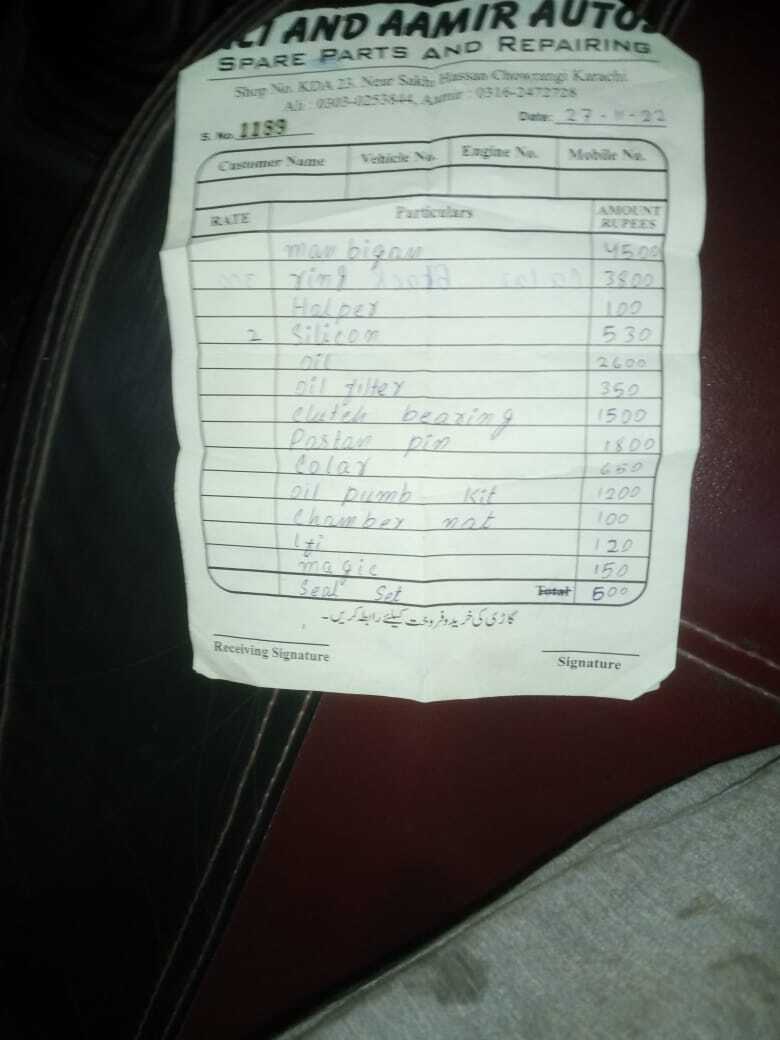 ALI AND AAMIR AUTOS
SPARE PARTS AND REPAIRING
Shop No. KDA 23, Near Sakhi Hassan Chowrangi Karachi
Ali : 0303-0253844, Aamir : 0316-2472728
Date: 27-11-22
S. No. 1189
Customer Name Vehicle No. Engine No. Mobile No.
RATE Particulars AMOUNT RUPEES
man bigan 4500
ring 3800
Halper 100
2 Silicon 530
oil 2600
oil filter 350
Clutch bearing 1500
Pastan pin 1800
Colar 650
oil pumb kit 1200
Chamber nat 100
120
magic 150
Seal Set Total 500
گاڑی کی خرید و فروخت کیلئے رابطہ کریں۔
Receiving Signature
Signature